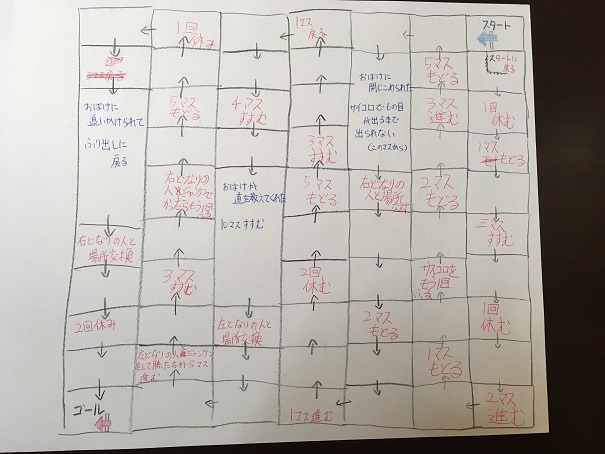 スタート
スタートに
戻る
1回
休む
1マス
もどる
三マス
すすむ
1回
休む
2マス
進む
5マス
もどる
3マス
進む
2マス
もどる
サイコロを
もう1回
1マス
もどる
おばけに
閉じこめられた
サイコロで6の目
が出るまで
出られない
(このマスから)
右となりの
人と場所
2マス
もどる
1マス
戻る
3マス
すすむ
5マス
もどる
2回
休む
1マス進む
4マス
すすむ
おばけが
道を教えてくれた
10マスすすむ
左となりの人と
場所交換
1回
休み
5マス
もどる
右となりの
人とジャンケンで
かったらもう1回
3マス
すすむ
左となりの人とジャンケン
をして勝った方が5マス
進む
おばけに
追いかけられて
ふり出しに
戻る
右となりの人と
場所交換
2回休み
ゴール